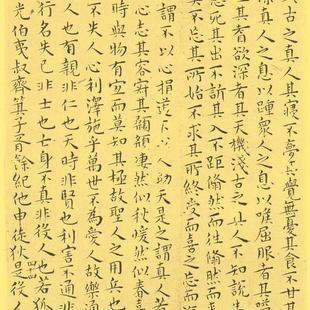 古之真人其寢不夢其覺無憂其食不甘其
息深真人之息以踵眾人之息以喉屈服者其嗌
其耆欲深者其天機淺古之真人不知說生
惡死其出不訢其入不距翛然而往翛然而
矣不忘其所始不求其所終受而喜之忘而
謂不以心捐道不以人助天是之謂真人若
心志其容寂其顙頯淒然似秋煖然似春喜
時與物有宜而莫知其極故聖人之用兵也
不失人心利澤施乎萬世不為愛人故樂通
人也有親非仁也天時非賢也利害不通非
行名失己非士也亡身不真非役人也若狐
四十四
光伯夷叔齊箕子胥餘紀他申徒狄是役人